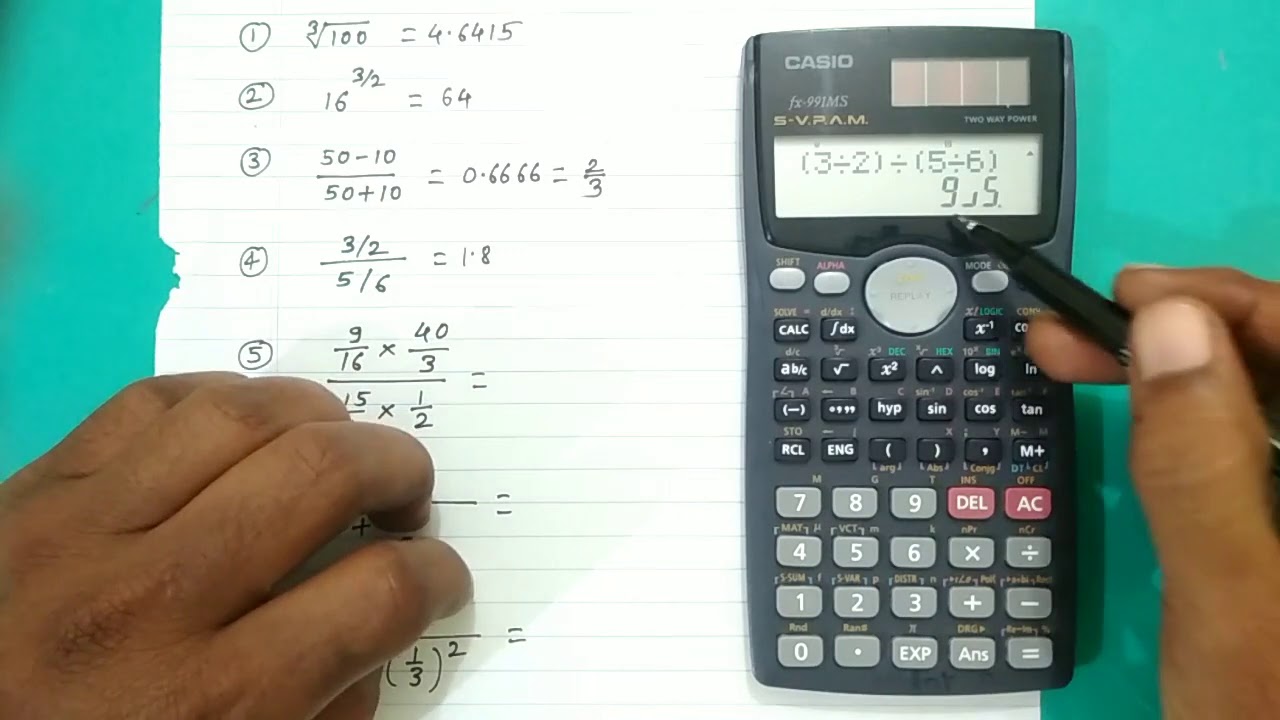 ① ∛100 = 4.6415
② 16^3/2 = 64
③ 50-10 / 50+10 = 0.6666 = 2/3
④ 3/2 / 5/6 = 1.8
⑤ 9/16 × 40/3 =
15 × 1/2
=
+
=
(1/3)^2
CASIO
fx-991MS
S-V.P.A.M.
TWO WAY POWER
(3÷2)÷(5÷6)
9┘5.
SHIFT ALPHA MODE
REPLAY
SOLVE = d/dx : x! LOGIC
CALC ∫dx x⁻¹
d/c x³ DEC HEX 10ˣ BIN
ab/c √ x² ^ log ln
A B C sin⁻¹ D cos⁻¹ E tan⁻¹
(−) °,,, hyp sin cos tan
STO X ; Y M− M
RCL ENG ( ) , M+
arg Abs Conjg DT CL
M G T INS OFF
7 8 9 DEL AC
MAT μ VCT m k nPr nCr
4 5 6 × ÷
S-SUM f S-VAR p DISTR n
1 2 3 + −
Rnd Ran# π DRG▸
0 · EXP Ans =